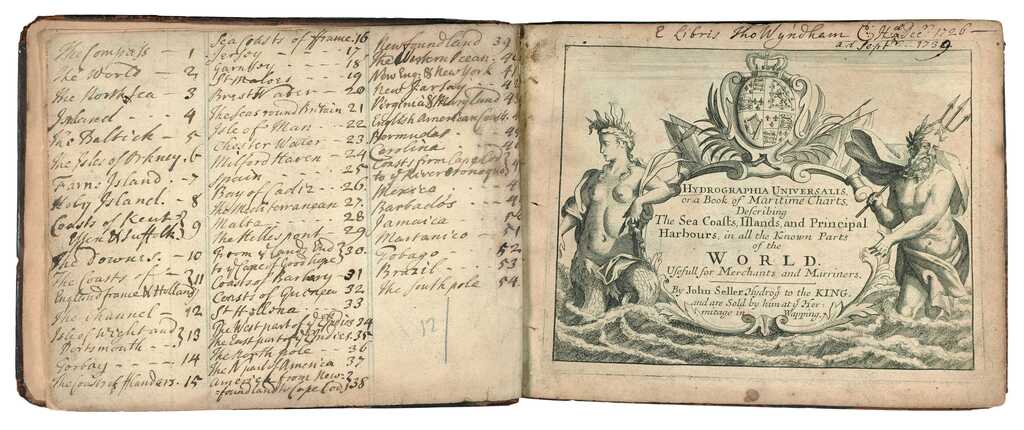 The Compass - 1
The World - 2
The North Sea - 3
- 4
The Baltick - 5
The Isles of Orkney. 6
Farn Island - 7
Holy Island. - 8
Coasts of Kent
Essex & Suffolk. } 9
The Downes. - 10
The Coasts of } 11
England france & Holland
The Channel 12
Isle of Wight and } 13
Portsmouth
Torbay - - 14
The Coast of Flanders. - 15
Sea Coasts of ffrance. 16
Jersey - - - 17
Garnsey - - - 18
St Maloes - - 19
Brest Water - 20
The Seas round Britain 21
Isle of Man - - 22
Chester Water - 23
Milford Haven - 24
Spain - - 25
Bay of Cadiz - - 26.
The Mediterranean 27.
Malta - - 28.
The Hellespont - 29
from Lands End } 30
to ye Cape of Good hope
Coasts of Barbary 31
Coasts of Guinea 32
St Hellena - 33
The West part of ye Indies 34
The East part of ye Indies. 35
The North pole - 36
The N part of America 37
America from New- } 38
foundland to Cape Cod
Newfoundland 39
The Western Ocean. 40
New Eng: & New York 41
New Jarsey
Virginia & Maryland
English American
Bermudas
Carolina
Coasts from Cape Cod
to ye River
Mexico
Barbados
Jamaica
Martanico
Tobago 52
Brazil 53
The South pole 54
12
E Libris Tho Wyndham 1726
a.d. Septr 1739
HYDROGRAPHIA UNIVERSALIS,
or a Book of Maritime Charts,
Describing
The Sea Coasts, Islands, and Principal
Harbours, in all the Known Parts
of the
WORLD.
Usefull for Merchants and Marriners.
By John Seller Hydrogr to the KING.
and are Sold by him at ye Her-
mitage in Wapping.